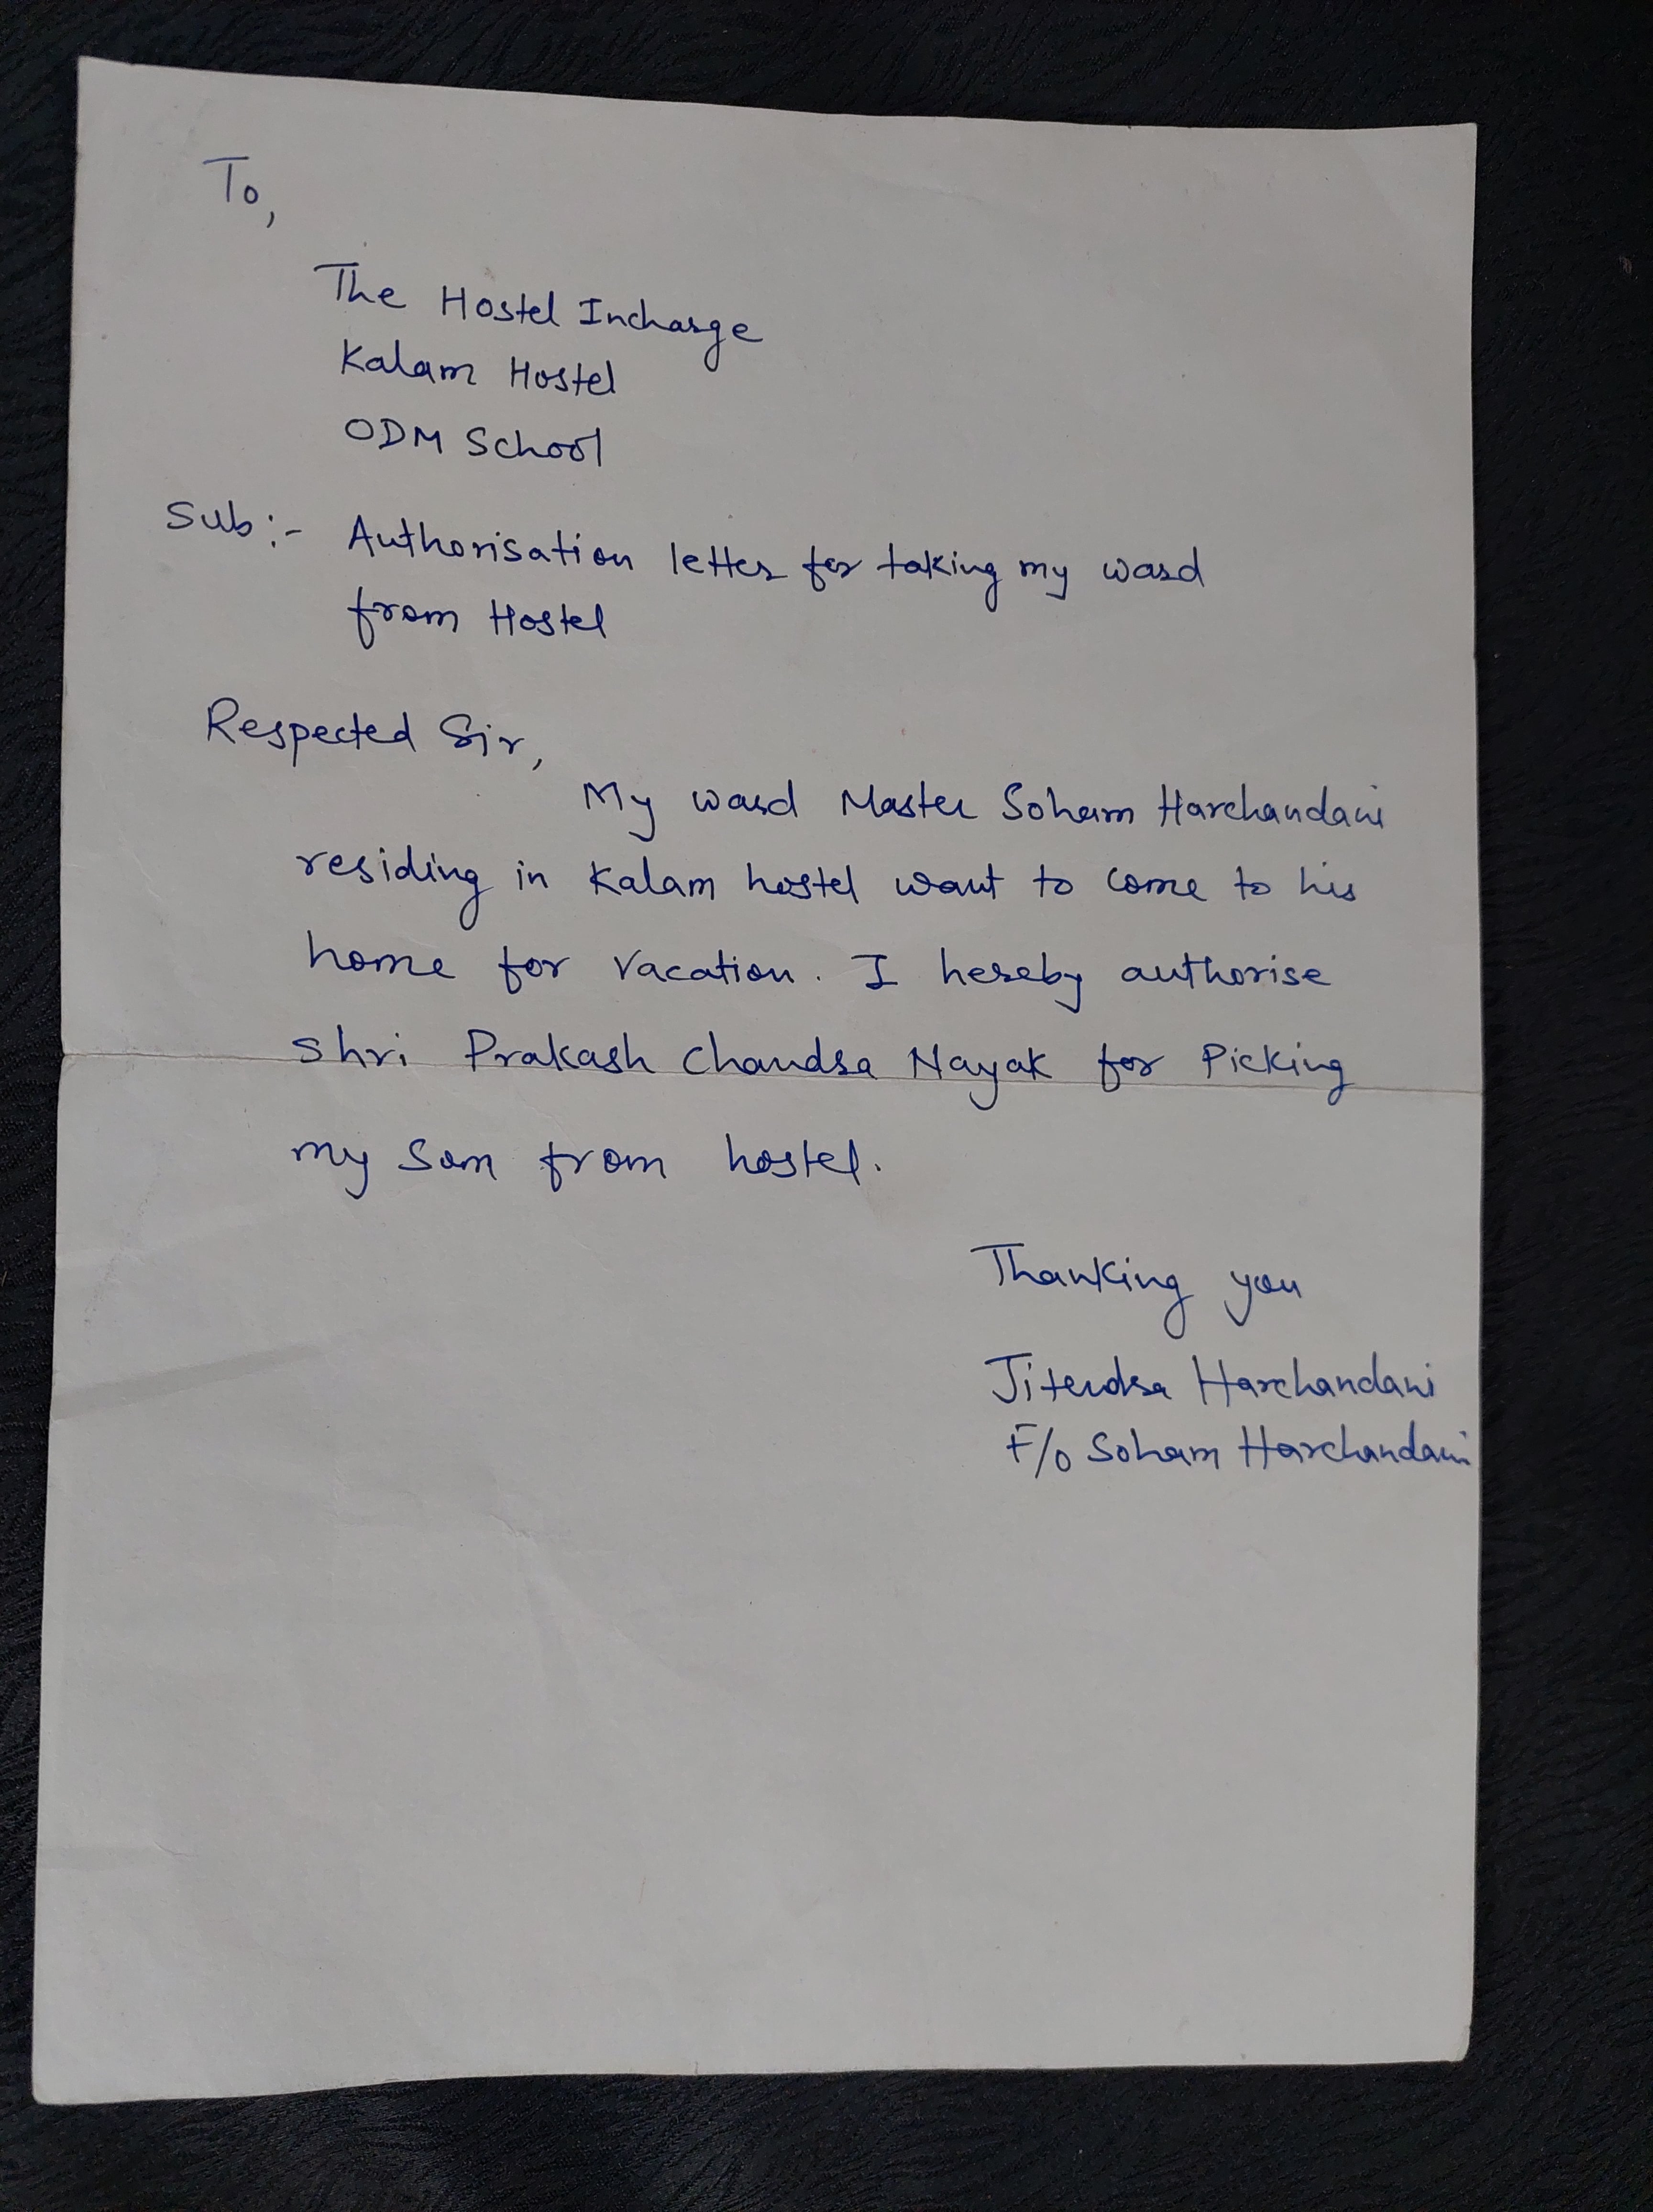 To,
The Hostel Incharge
Kalam Hostel
ODM School
Sub:- Authorisation letter for taking my ward
from Hostel
Respected Sir,
My ward Master Soham Harchandani
residing in Kalam hostel want to come to his
home for vacation. I hereby authorise
Shri Prakash Chandra Nayak for Picking
my son from hostel.
Thanking you
Jitendra Harchandani
F/o Soham Harchandani